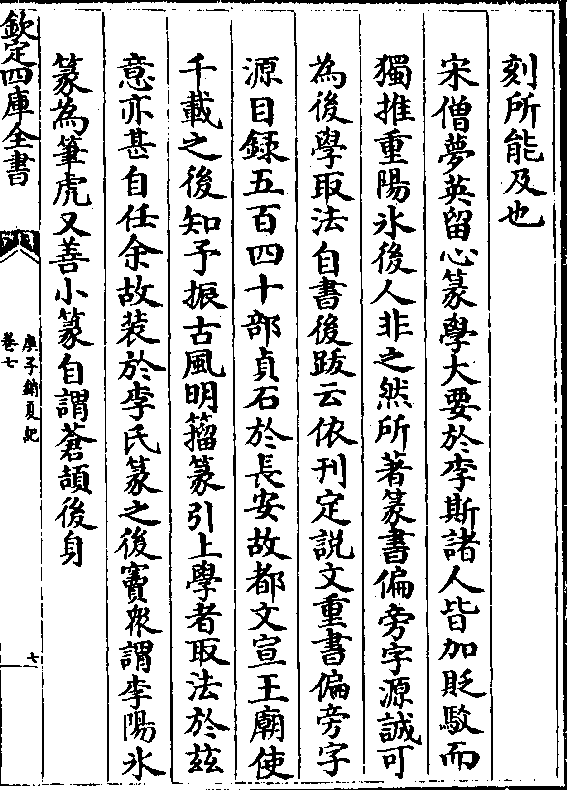 刻所能及也
宋僧夢英留心篆學大要於李斯諸人皆加貶駁而
獨推重陽氷後人非之然所著篆書偏旁字源誠可
為後學取法自書後跋云依刊定說文重書偏旁字
源目録五百四十部貞石於長安故都文宣王廟使
千載之後知予振古風明籀篆引上學者取法於兹
意亦甚自任余故裝於李氏篆之後竇衆謂李陽氷
篆為筆虎又善小篆自謂蒼頡後身
欽定四庫全書
庚子銷夏記
卷七
七